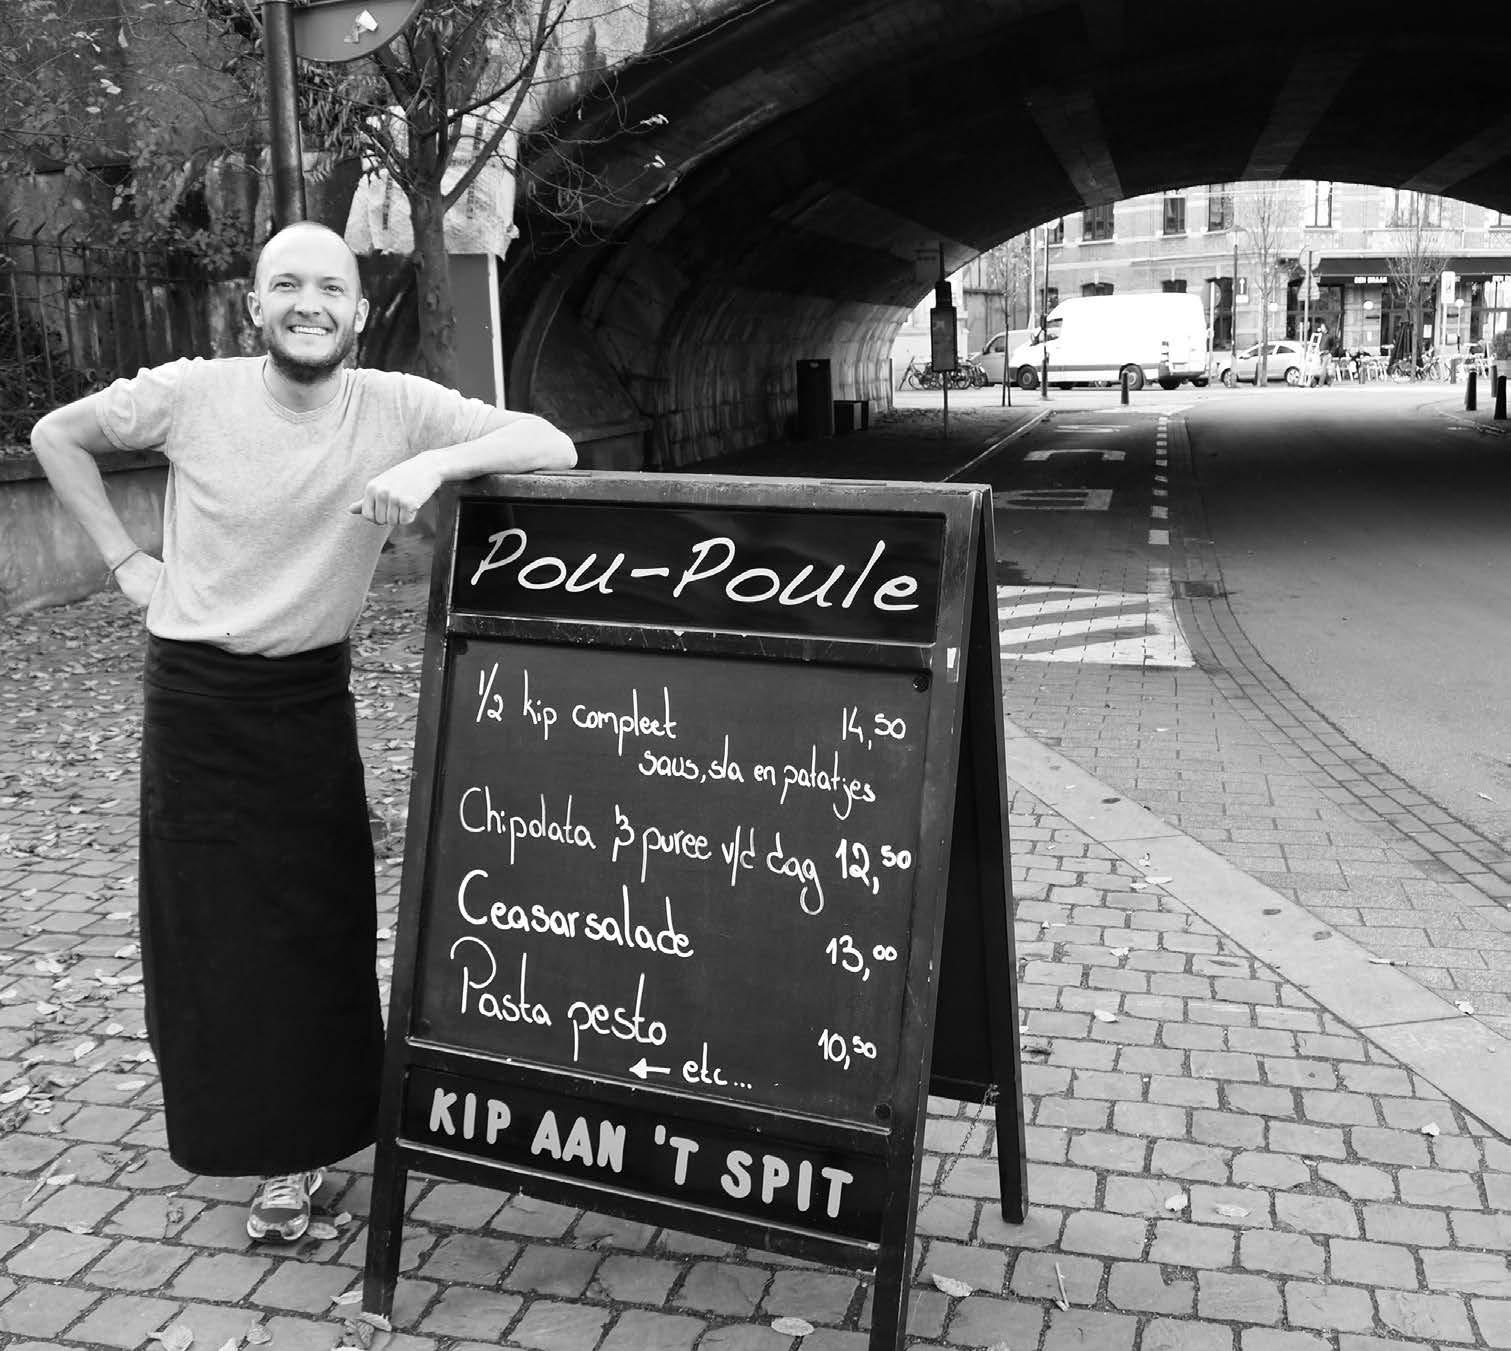 Pou-Poule
1/2 kip compleet 14,50
saus, sla en patatjes
Chipolata & puree v/d dag 12,50
Ceasarsalade 13,00
Pasta pesto 10,50
← etc...
KIP AAN 'T SPIT